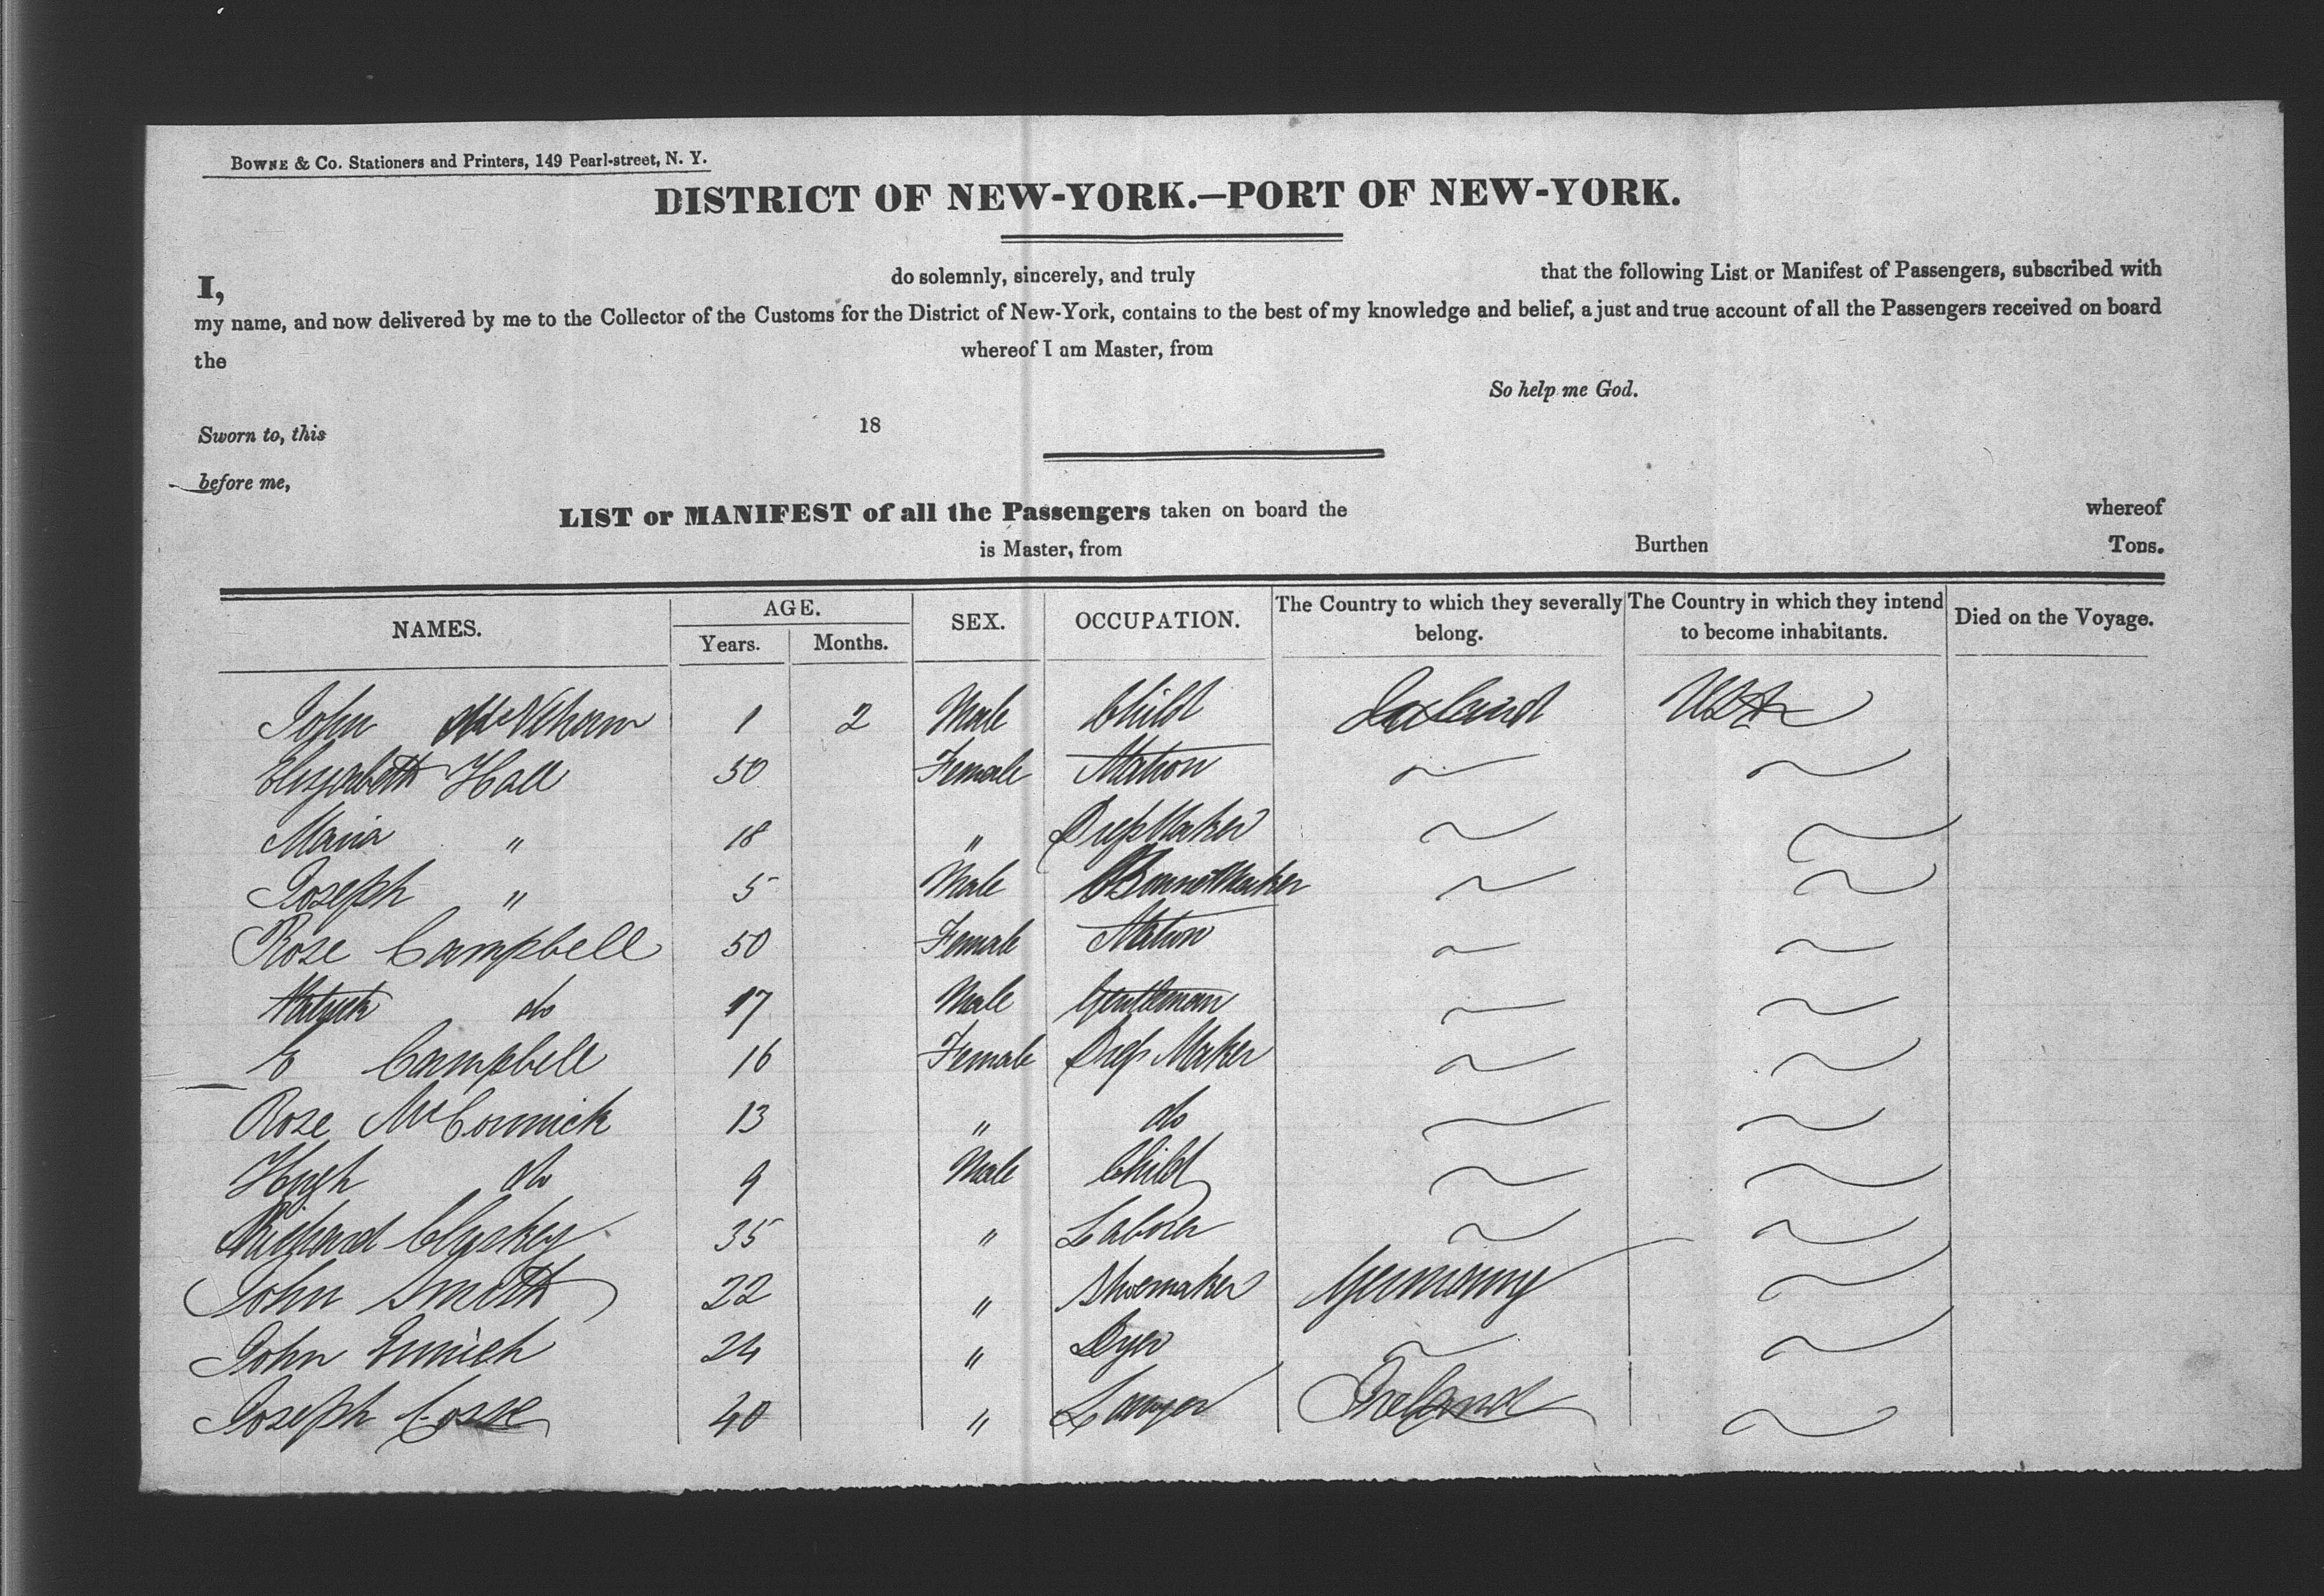 BOWNE & CO. Stationers and Printers, 149 Pearl-street, N. Y.
DISTRICT OF NEW-YORK.—PORT OF NEW-YORK.
I, do solemnly, sincerely, and truly that the following List or Manifest of Passengers, subscribed with
my name, and now delivered by me to the Collector of the Customs for the District of New-York, contains to the best of my knowledge and belief, a just and true account of all the Passengers received on board
the whereof I am Master, from
So help me God.
Sworn to, this 18
before me,
LIST or MANIFEST of all the Passengers taken on board the whereof
is Master, from Burthen Tons.
NAMES. AGE. SEX. OCCUPATION. The Country to which they severally belong. The Country in which they intend to become inhabitants. Died on the Voyage.
Years. Months.
John 1 2 Male Child USA
Elizabeth Hall 50 Female Matron
Maria " 18 " Dress Maker
Joseph " 5 Male
Rose Campbell 50 Female Matron
Patrick do 17 Male Gentleman
E Campbell 16 Female Dress Maker
Rose McCormick 13 " do
Hugh do 9 Male Child
Richard Cluskey 35 " Laborer
John Smith 22 " Shoemaker Germany
John 24 " Dyer
Joseph 40 " Lawyer Ireland